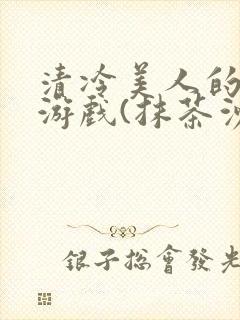 清冷美人的
游戏(抹茶沙
银子总會發光